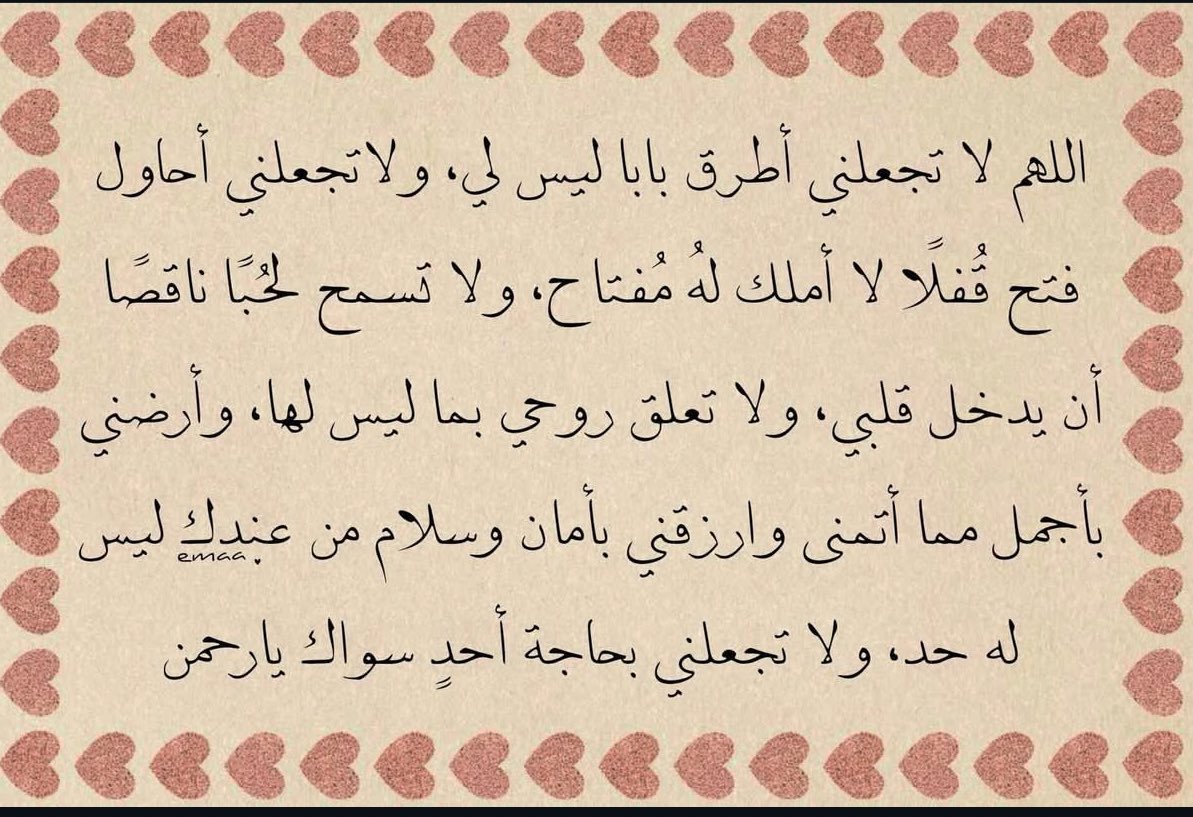 اللهم لا تجعلني أطرق بابا ليس لي، ولاتجعلني أحاول
فتح قُفلًا لا أملك لهُ مُفتاح، ولا تسمح لحُبًا ناقصًا
أن يدخل قلبي، ولا تعلق روحي بما ليس لها، وأرضني
بأجمل مما أتمنى وارزقني بأمان وسلام من عندك ليس
emaa
له حد، ولا تجعلني بحاجة أحدٍ سواك يارحمن